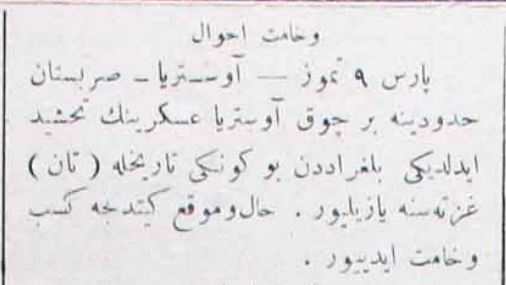 وخامت احوال
پارس ٩ تموز — آوستریا ـ صربستان
حدودینه بر چوق آوستریا عسکرینك تحشید
ایدلدیکی بلغراددن بو کونکی تاریخله ( تان )
غزته‌سنه یازیلیور . حال‌وموقع کیتدجه کسب
وخامت ایدییور .